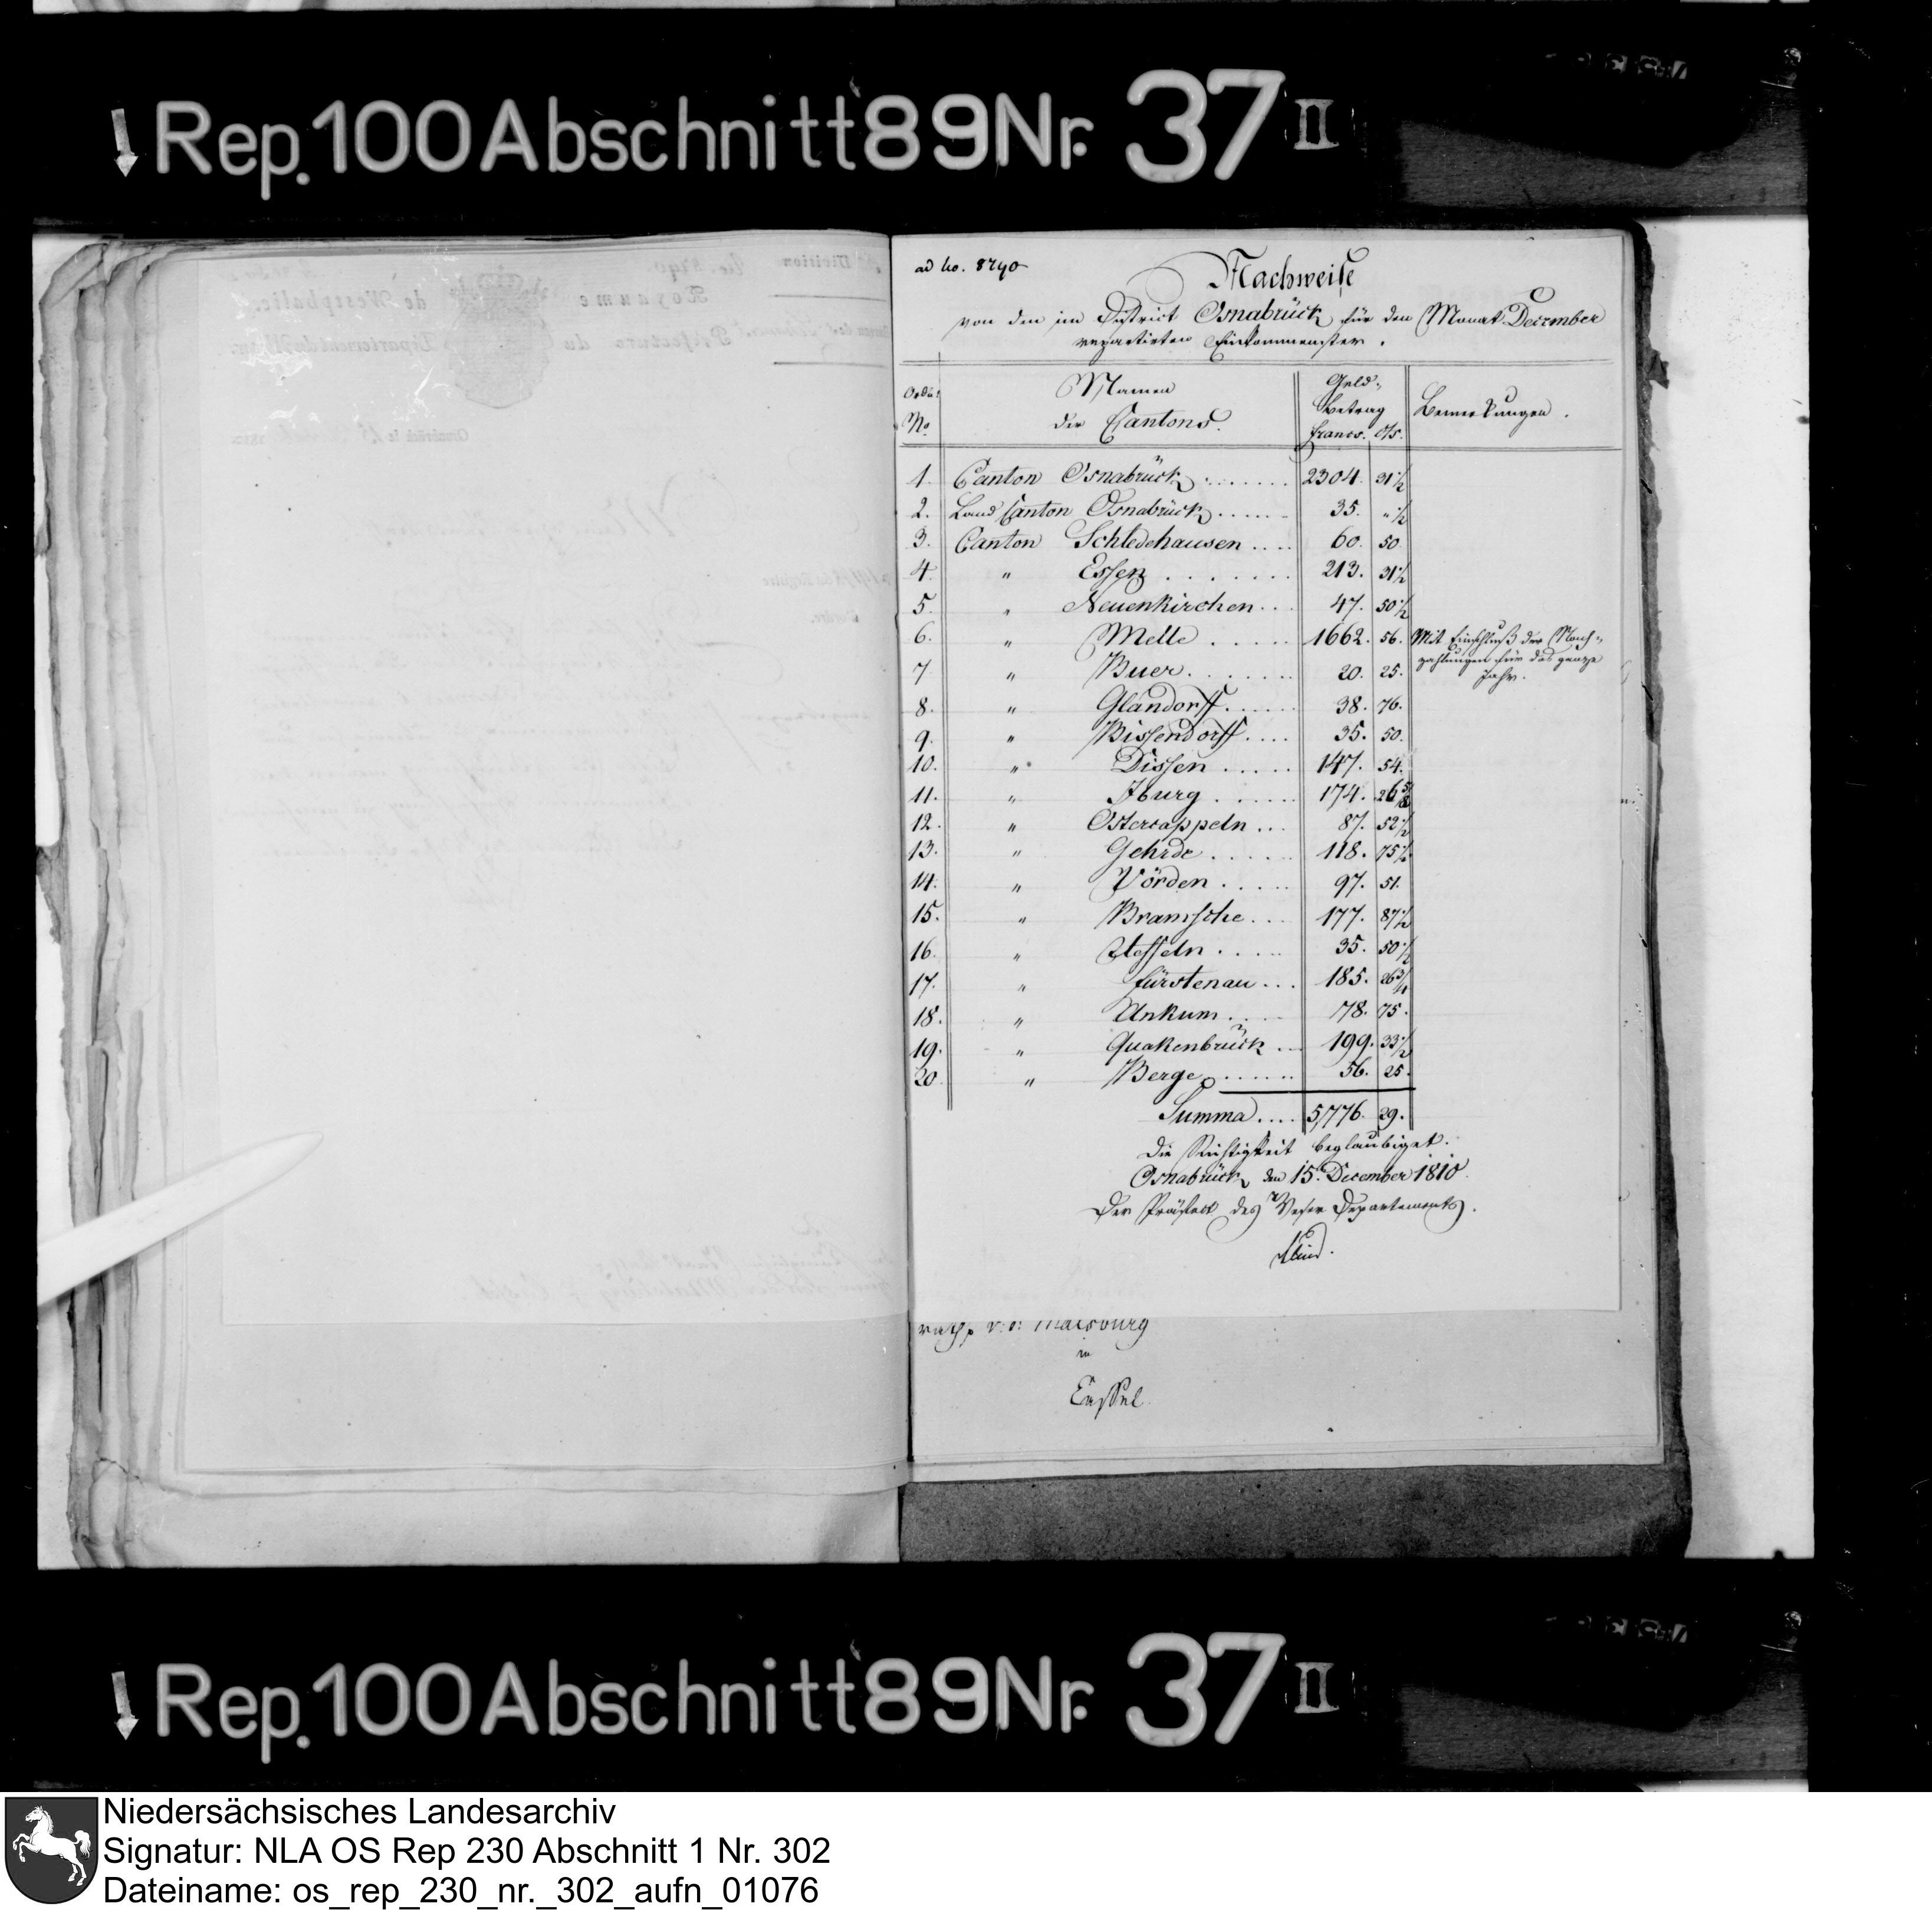 Rep. 100 Abschnitt 89 Nr. 37 II
ad No. 8790
Nachweise
von den im District Osnabrück für den Monat December
repartirten Einkommensteuer.
Ordn:
No
Namen
der Cantons.
Geld-
betrag
francs. cts.
Bemerkungen.
1. Canton Osnabrück ....... 2304. 31½
2. Land Canton Osnabrück ...... 35. " ½
3. Canton Schledehausen .... 60. 50.
4. " Essen ....... 213. 31½
5. " Neuenkirchen ... 47. 50½
6. " Melle ..... 1662. 56. Mit Einschluß der Nach-
zahlungen für das ganze
Jahr.
7 " Buer ....... 20. 25.
8. " Glandorff ...... 38. 76.
9. " Bissendorff .... 35. 50.
10. " Dissen ..... 147. 54.
11. " Iburg ...... 174. 26 5/8
12. " Ostercappeln ... 87. 52½
13. " Gehrde ...... 118. 75½
14. " Vörden ..... 97. 51.
15. " Bramsche ... 177. 87½
16. " Ueffeln ..... 35. 50½
17. " Fürstenau ... 185. 26¾
18. " Ankum .... 78. 75.
19. " Quakenbrück ... 199. 33½
20. " Berge ...... 56. 25.
Summa .... 5,776. 29.
Die Richtigkeit beglaubiget.
Osnabrück den 15. December 1810.
Der Präfect des Weser Departements.
raths v. d. Malsburg
in
Cassel
Rep. 100 Abschnitt 89 Nr. 37 II
Niedersächsisches Landesarchiv
Signatur: NLA OS Rep 230 Abschnitt 1 Nr. 302
Dateiname: os_rep_230_nr._302_aufn_01076